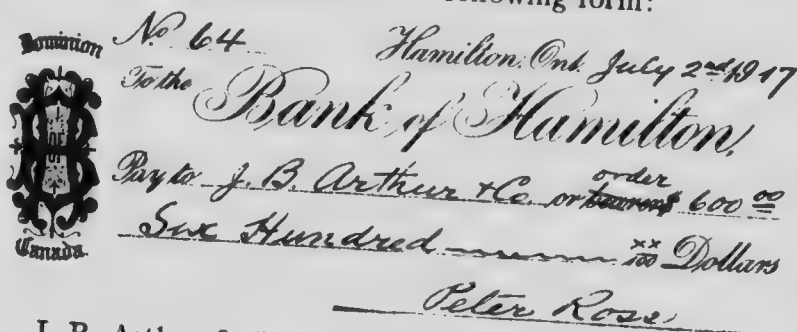 following form:
Dominion
Canada.
No. 64
Hamilton, Ont. July 2nd 1917
To the
Bank of Hamilton,
order
Pay to J. B. Arthur & Co or bearer $ 600 00
Six Hundred xx/100 Dollars
Peter Ross